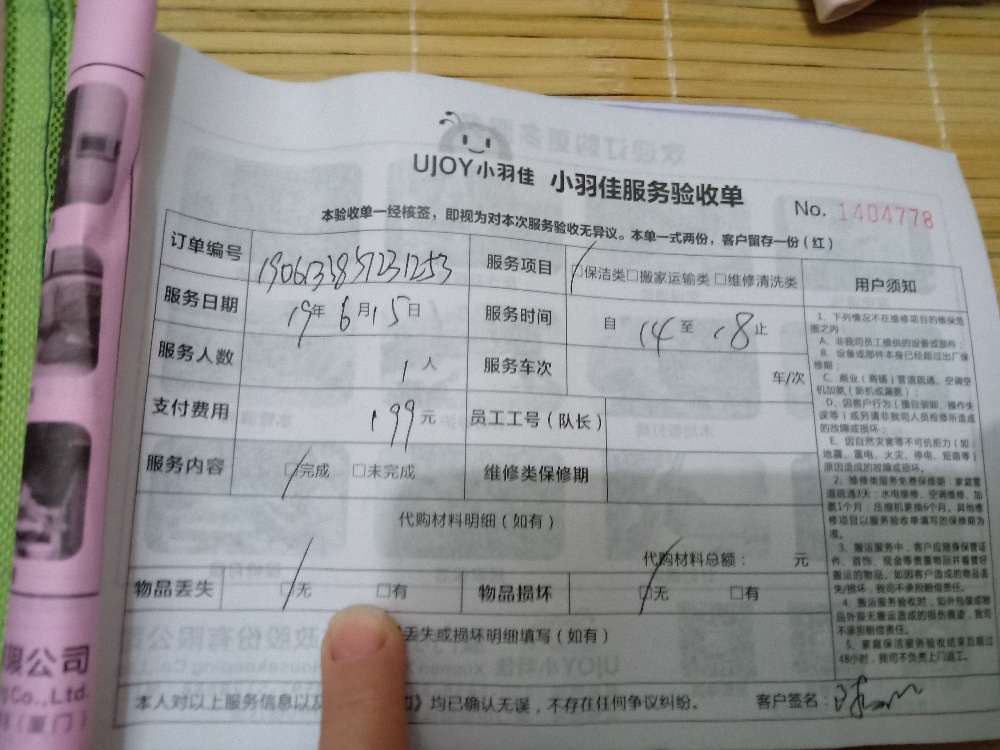 UJOY小羽佳 小羽佳服务验收单
No. 1404778
本验收单一经核签，即视为对本次服务验收无异议。本单一式两份，客户留存一份（红）
订单编号 19061338571231253 服务项目 □保洁类□搬家运输类□维修清洗类
服务日期 19年6月15日 服务时间 自14至18止
服务人数 1人 服务车次 车/次
支付费用 199元 员工工号（队长）
服务内容 □完成 □未完成 维修类保修期
代购材料明细（如有）
代购材料总额： 元
物品丢失 □无 □有 物品损坏 □无 □有
丢失或损坏明细填写（如有）
本人对以上服务信息以及 均已确认无误，不存在任何争议纠纷。 客户签名：
用户须知
1、下列情况不在维修项目的维保范
围之内：
A、非我司员工提供的设备或部件；
B、设备或部件本身已经超过出厂保
修期；
C、商业（商铺）管道疏通、空调空
机加氨（新机或漏氨）；
D、因客户行为（擅自装卸、操作失
误等）或另请非我司人员检修所造成
的故障或损坏；
E、因自然灾害等不可抗能力（如：
地震、雷电、火灾、停电、短路等）
原因造成的故障或损坏。
2、维修类服务免费保修期：家庭管
道疏通3天；水电维修、空调维修、加
氨1个月；压缩机更换6个月。其他维
修项目以服务验收单填写的保修期为
准。
3、搬运服务中，客户应随身保管证
件、首饰、现金等贵重物品并看管好
搬运的物品。如因客户造成的物品丢
失/损坏，我司不承担赔偿责任。
4、搬运服务验收时，如外包装或物
品外观无搬运造成的损伤痕迹，我司
不承担赔偿责任。
5、家庭保洁服务验收结束后超过
48小时，我司不负责上门返工。
限公司
Co.,Ltd.
（厦门）